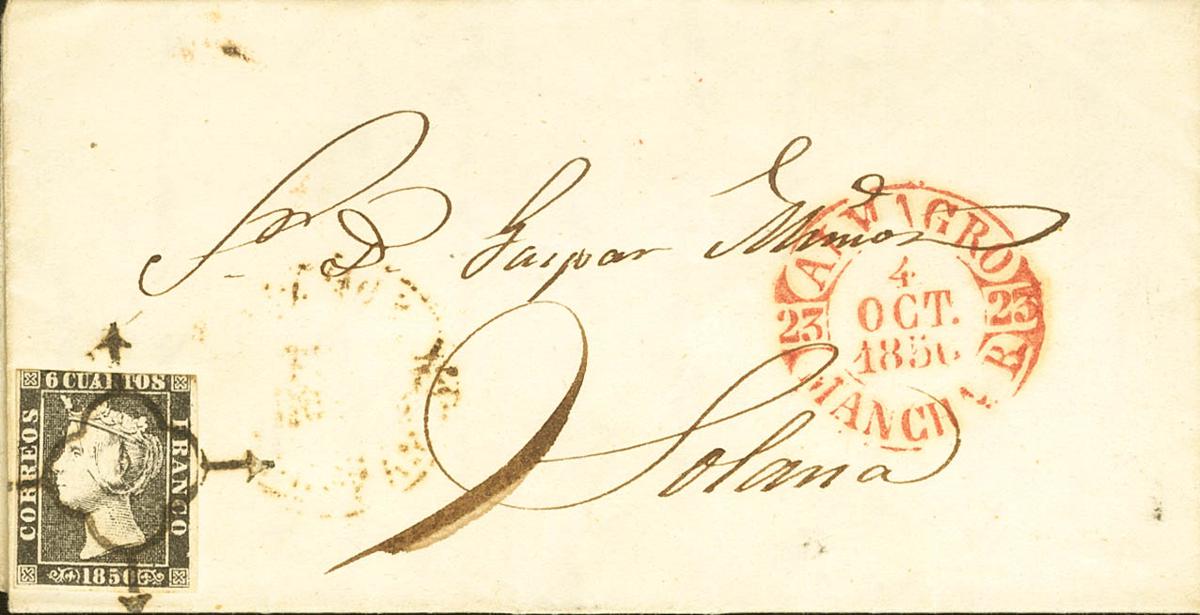 Sr. D. Gaspar
Solana
ALMAGRO
4
OCT.
1850
23 23
MANCHA R
6 CUARTOS
CORREOS
FRANCO
1850